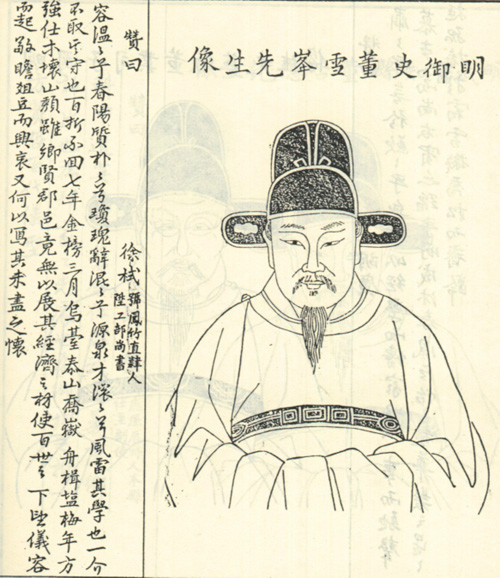 明御史董雪岑先生像
贊曰
徐栻
號鳳竹直隸人
陞工部尚書
容溫〻乎春陽質朴〻兮瓊瑰辭混〻乎源泉才〻兮風雷其學也一介
不取其守也百折不回七年金榜三月烏臺泰山喬嶽舟楫塩梅年方
強仕木壞山頹雖鄉賢郡邑竟無以展其經濟之材使百世之下望儀容
而起敬瞻俎豆而興哀又何以寫其未盡之懷